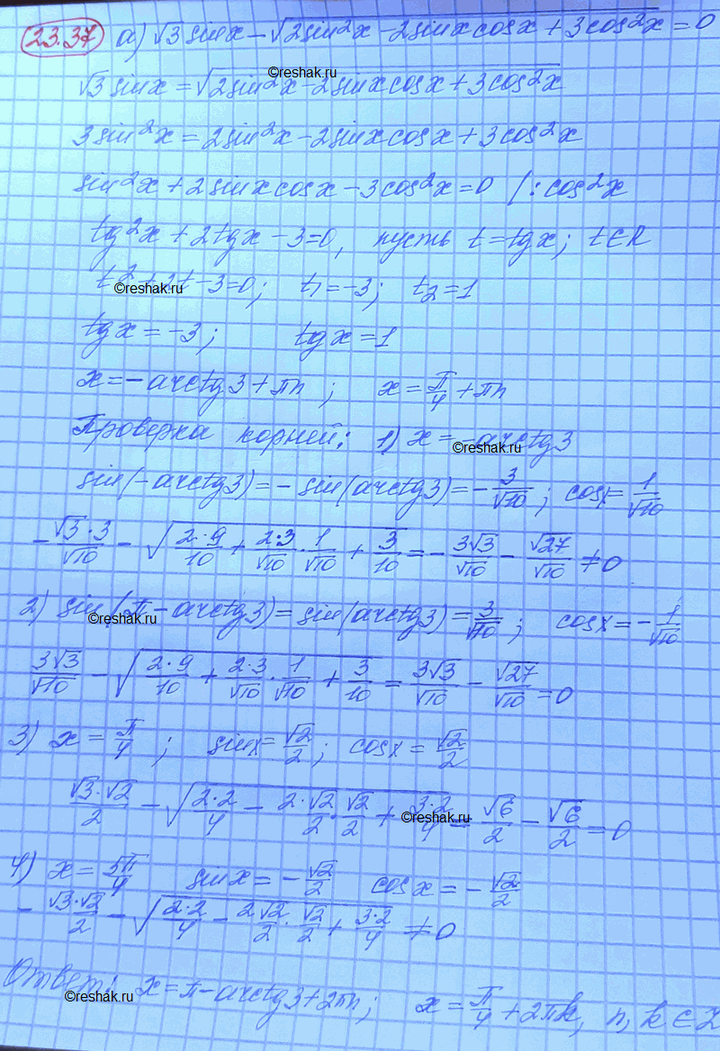 23.37 а) √3 sinx - √(2sin²x - 2sinxcosx + 3cos²x) = 0
©reshak.ru
√3 sinx = √(2sin²x - 2sinxcosx + 3cos²x)
3sin²x = 2sin²x - 2sinxcosx + 3cos²x
sin²x + 2sinxcosx - 3cos²x = 0 |:cos²x
tg²x + 2tgx - 3 = 0, пусть t = tgx; t∈R
t² + 2t - 3 = 0; t₁ = -3; t₂ = 1
©reshak.ru
tgx = -3; tgx = 1
x = -arctg3 + πn; x = π/4 + πn
Проверка корней: 1) x = -arctg3
©reshak.ru
sin(-arctg3) = -sin(arctg3) = -3/√10; cosx = 1/√10
-√3·3/√10 - √(2·9/10 + 2·3/√10·1/√10 + 3/10) = -3√3/√10 - √27/√10 ≠ 0
2) sin(π - arctg3) = sin(arctg3) = 3/√10; cosx = -1/√10
©reshak.ru
3√3/√10 - √(2·9/10 + 2·3/√10·1/√10 + 3/10) = 3√3/√10 - √27/√10 = 0
3) x = π/4; sinx = √2/2; cosx = √2/2
√3·√2/2 - √(2·2/4 - 2·√2/2·√2/2 + 3·2/4) = √6/2 - √6/2 = 0
©reshak.ru
4) x = 5π/4 sinx = -√2/2 cosx = -√2/2
-√3·√2/2 - √(2·2/4 - 2√2/2·√2/2 + 3·2/4) ≠ 0
Ответ: x = π - arctg3 + 2πn; x = π/4 + 2πk, n, k ∈ Z
©reshak.ru